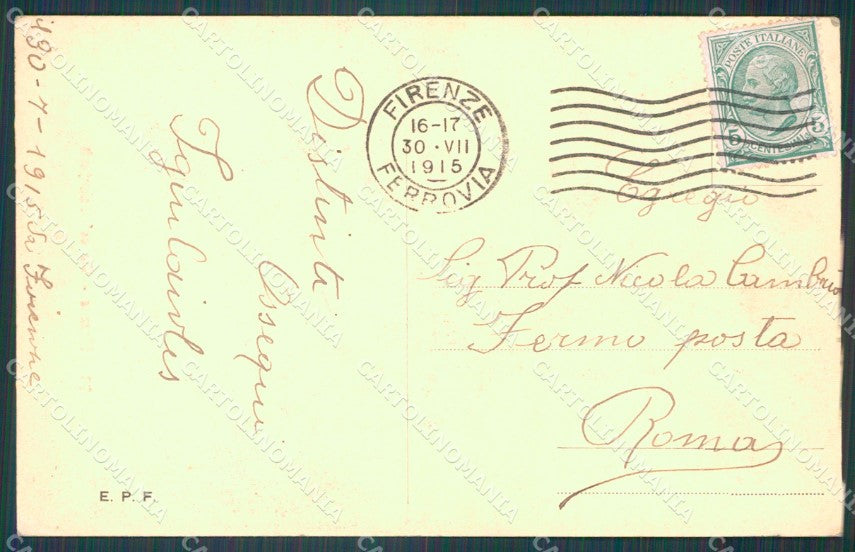 FIRENZE
16-17
30 · VII
1915
FERROVIA
POSTE ITALIANE
5 5
Egregio
Sig Prof Nicola
Fermo posta
Roma
Distinti
Ossequi
30-7-1915 da Firenze
E. P. F.
CARTOLINOMANIA